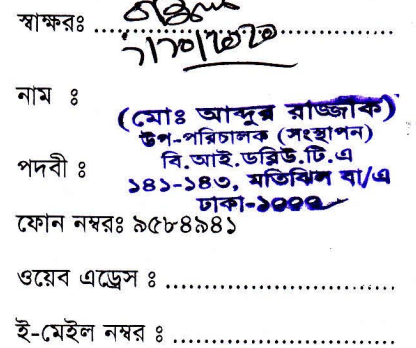 স্বাক্ষরঃ ....................................
৭/১০/২০২০
নাম ঃ
(মোঃ আব্দুর রাজ্জাক)
উপ-পরিচালক (সংস্থাপন)
পদবী ঃ
বি.আই.ডব্লিউ.টি.এ
১৪১-১৪৩, মতিঝিল বা/এ
ঢাকা-১০০০
ফোন নম্বরঃ ৯৫৮৪৯৪১
ওয়েব এড্রেস ঃ ..............................
ই-মেইল নম্বর ঃ ..............................